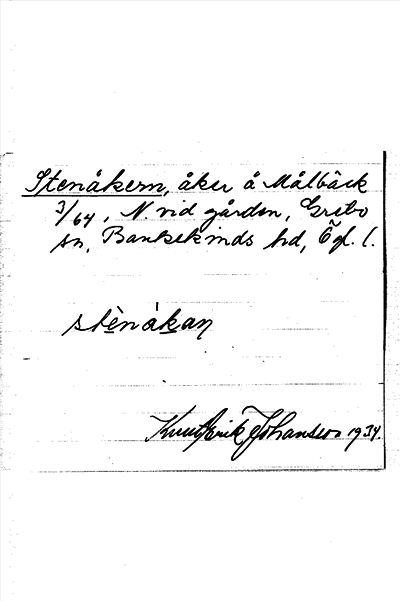 Stenåkern, åker å Målbäck
3/64, N. vid gården, Grebo
sn, Bankekinds hd, Ögl. l.
stènákaŋ
Knut Erik Johansson 1934.